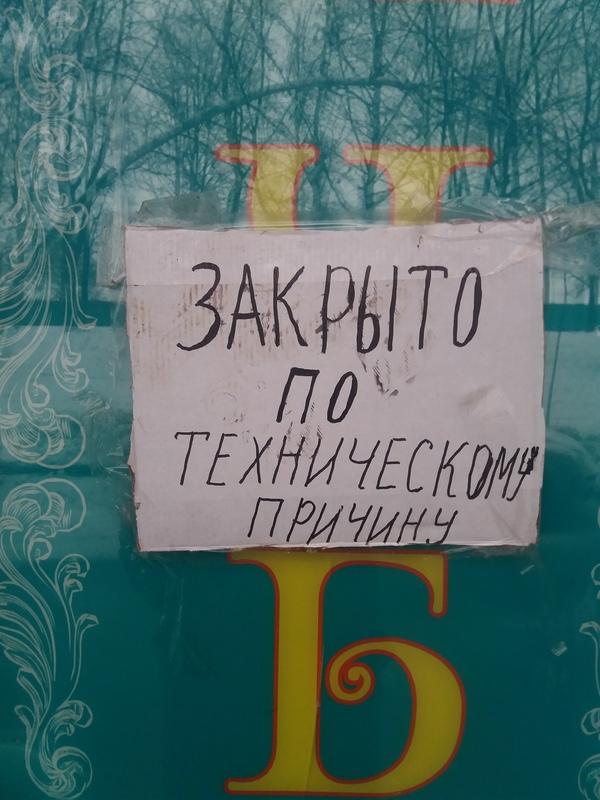 ЗАКРЫТО
ПО
ТЕХНИЧЕСКОМУ
ПРИЧИНУ
Б